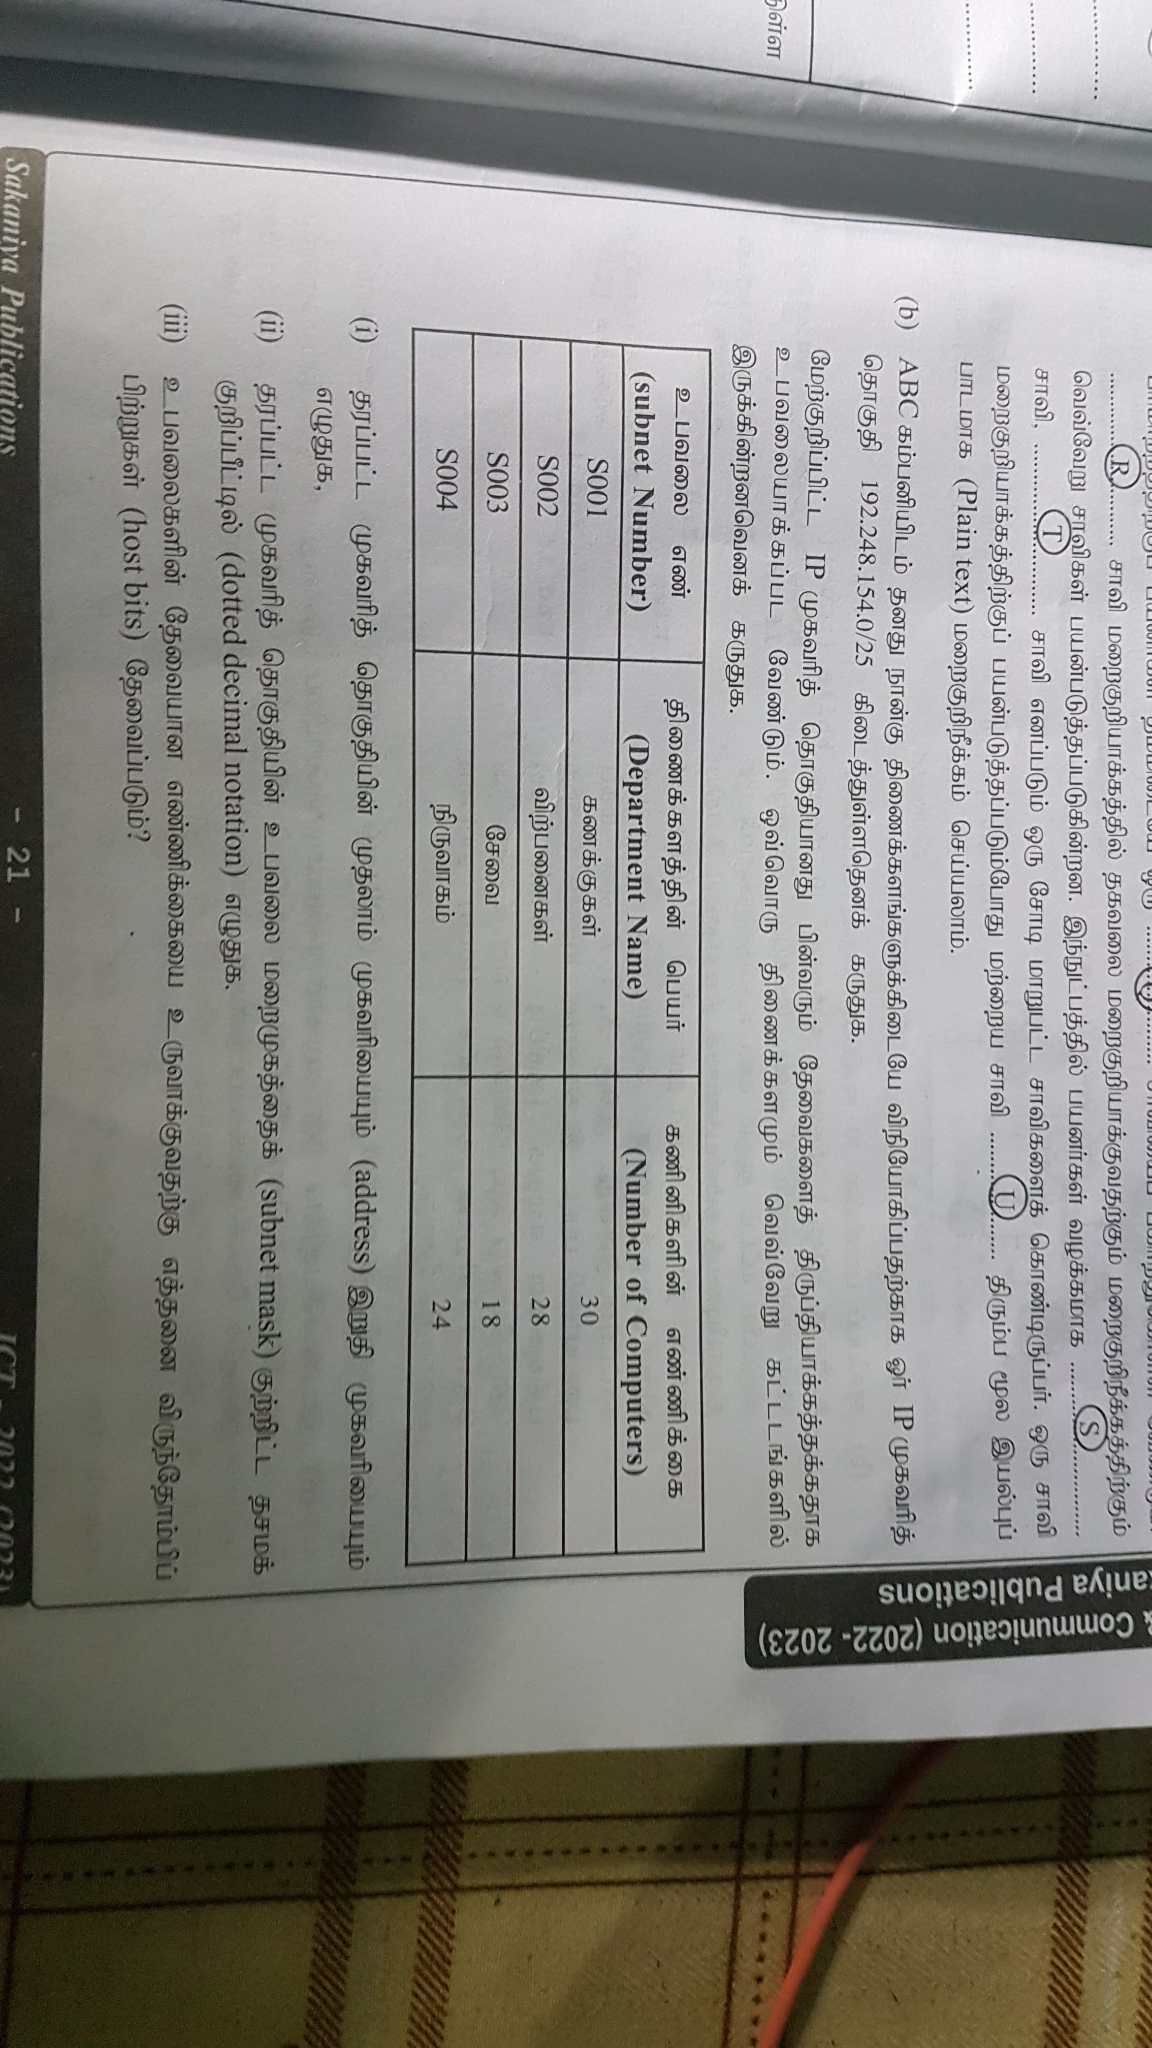 ள்ள
R சாவி மறைகுறியாக்கத்தில் தகவலை மறைகுறியாக்குவதற்கும் மறைகுறிநீக்கத்திற்கும்
வெவ்வேறு சாவிகள் பயன்படுத்தப்படுகின்றன. இந்நுட்பத்தில் பயனர்கள் வழக்கமாக ........ S ........
சாவி, ........ T ........ சாவி எனப்படும் ஒரு சோடி மாறுபட்ட சாவிகளைக் கொண்டிருப்பர். ஒரு சாவி
மறைகுறியாக்கத்திற்குப் பயன்படுத்தப்படும்போது மற்றைய சாவி ........ U ........ திரும்ப மூல இயல்புப்
பாடமாக (Plain text) மறைகுறிநீக்கம் செய்யலாம்.
(b) ABC கம்பனியிடம் தனது நான்கு திணைக்களங்களுக்கிடையே விநியோகிப்பதற்காக ஓர் IP முகவரித்
தொகுதி 192.248.154.0/25 கிடைத்துள்ளதெனக் கருதுக.
மேற்குறிப்பிட்ட IP முகவரித் தொகுதியானது பின்வரும் தேவைகளைத் திருப்தியாக்கத்தக்கதாக
உபவலையாக்கப்பட வேண்டும். ஒவ்வொரு திணைக்களமும் வெவ்வேறு கட்டடங்களில்
இருக்கின்றனவெனக் கருதுக.
உபவலை எண் திணைக்களத்தின் பெயர் கணினிகளின் எண்ணிக்கை
(subnet Number) (Department Name) (Number of Computers)
S001 கணக்குகள் 30
S002 விற்பனைகள் 28
S003 சேவை 18
S004 நிருவாகம் 24
(i) தரப்பட்ட முகவரித் தொகுதியின் முதலாம் முகவரியையும் (address) இறுதி முகவரியையும்
எழுதுக,
(ii) தரப்பட்ட முகவரித் தொகுதியின் உபவலை மறைமுகத்தைக் (subnet mask) குற்றிட்ட தசமக்
குறிப்பீட்டில் (dotted decimal notation) எழுதுக.
(iii) உபவலைகளின் தேவையான எண்ணிக்கையை உருவாக்குவதற்கு எத்தனை விருந்தோம்பிப்
பிற்றுகள் (host bits) தேவைப்படும்?
Sakaniya Publications - 21 - ICT - 2022 (2023)
& Communication (2022- 2023)
aniya Publications